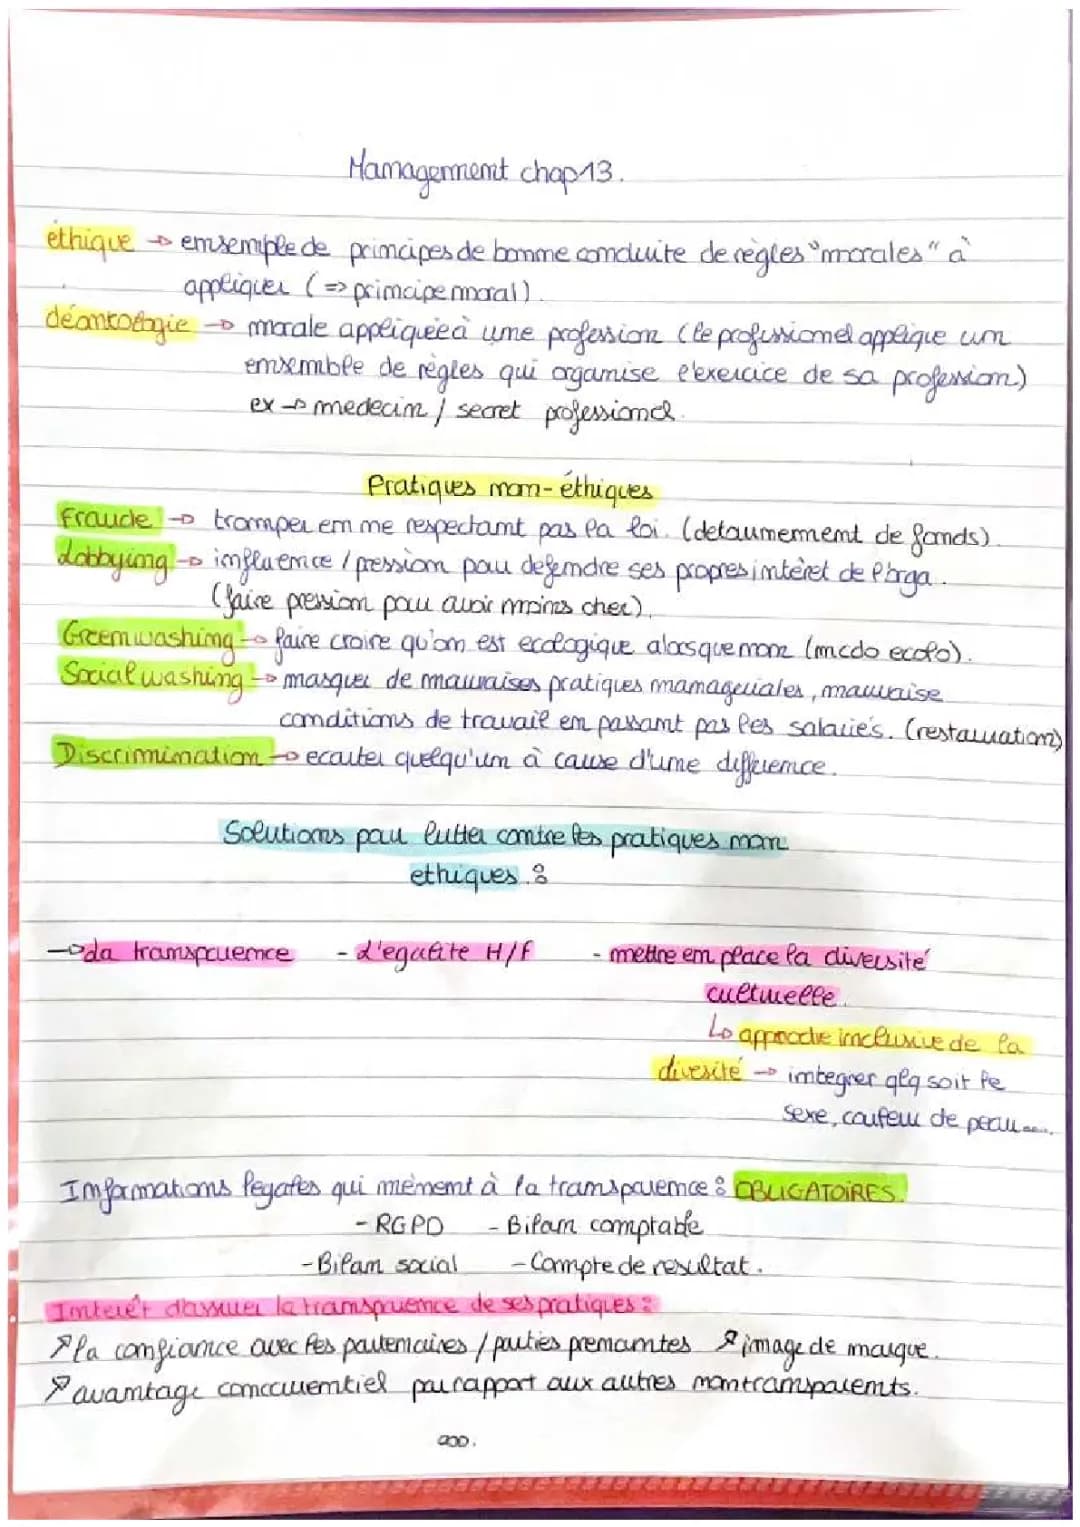 Management chap 13.
éthique → ensemble de principes de bonne conduite de règles "morales" à
appliquer (⇒ principe moral)
déontologie → morale appliquée à une profession (le professionnel applique un
ensemble de règles qui organise l'exercice de sa profession)
ex → medecin / secret professionel.
Pratiques non-éthiques
Fraude → tromper en ne respectant pas la loi. (detournement de fonds).
Lobbying → influence / pression pour defendre ses propres intèret de l'orga.
(faire pression pour avoir moins cher).
Greenwashing → faire croire qu'on est ecologique alors que non (mcdo ecolo).
Social washing → masquer de mauvaises pratiques manageriales, mauvaise
conditions de travail en passant par les salariés. (restauration)
Discrimination → ecarter quelqu'un à cause d'une différence.
Solutions pour lutter contre les pratiques non
ethiques :
→ La transparence - L'egalite H/F - mettre en place la diversité
culturelle.
↳ approche inclusive de la
diversité → integrer qlq soit le
sexe, couleur de peau....
Informations legales qui mènent à la transparence : OBLIGATOIRES.
- RGPD - Bilan comptable
- Bilan social - Compte de resultat.
Interêt d'assurer la transparence de ses pratiques :
↗ la confiance avec les partenaires / parties prenantes ↗ image de marque.
↗ avantage concurrentiel par rapport aux autres non transparents.